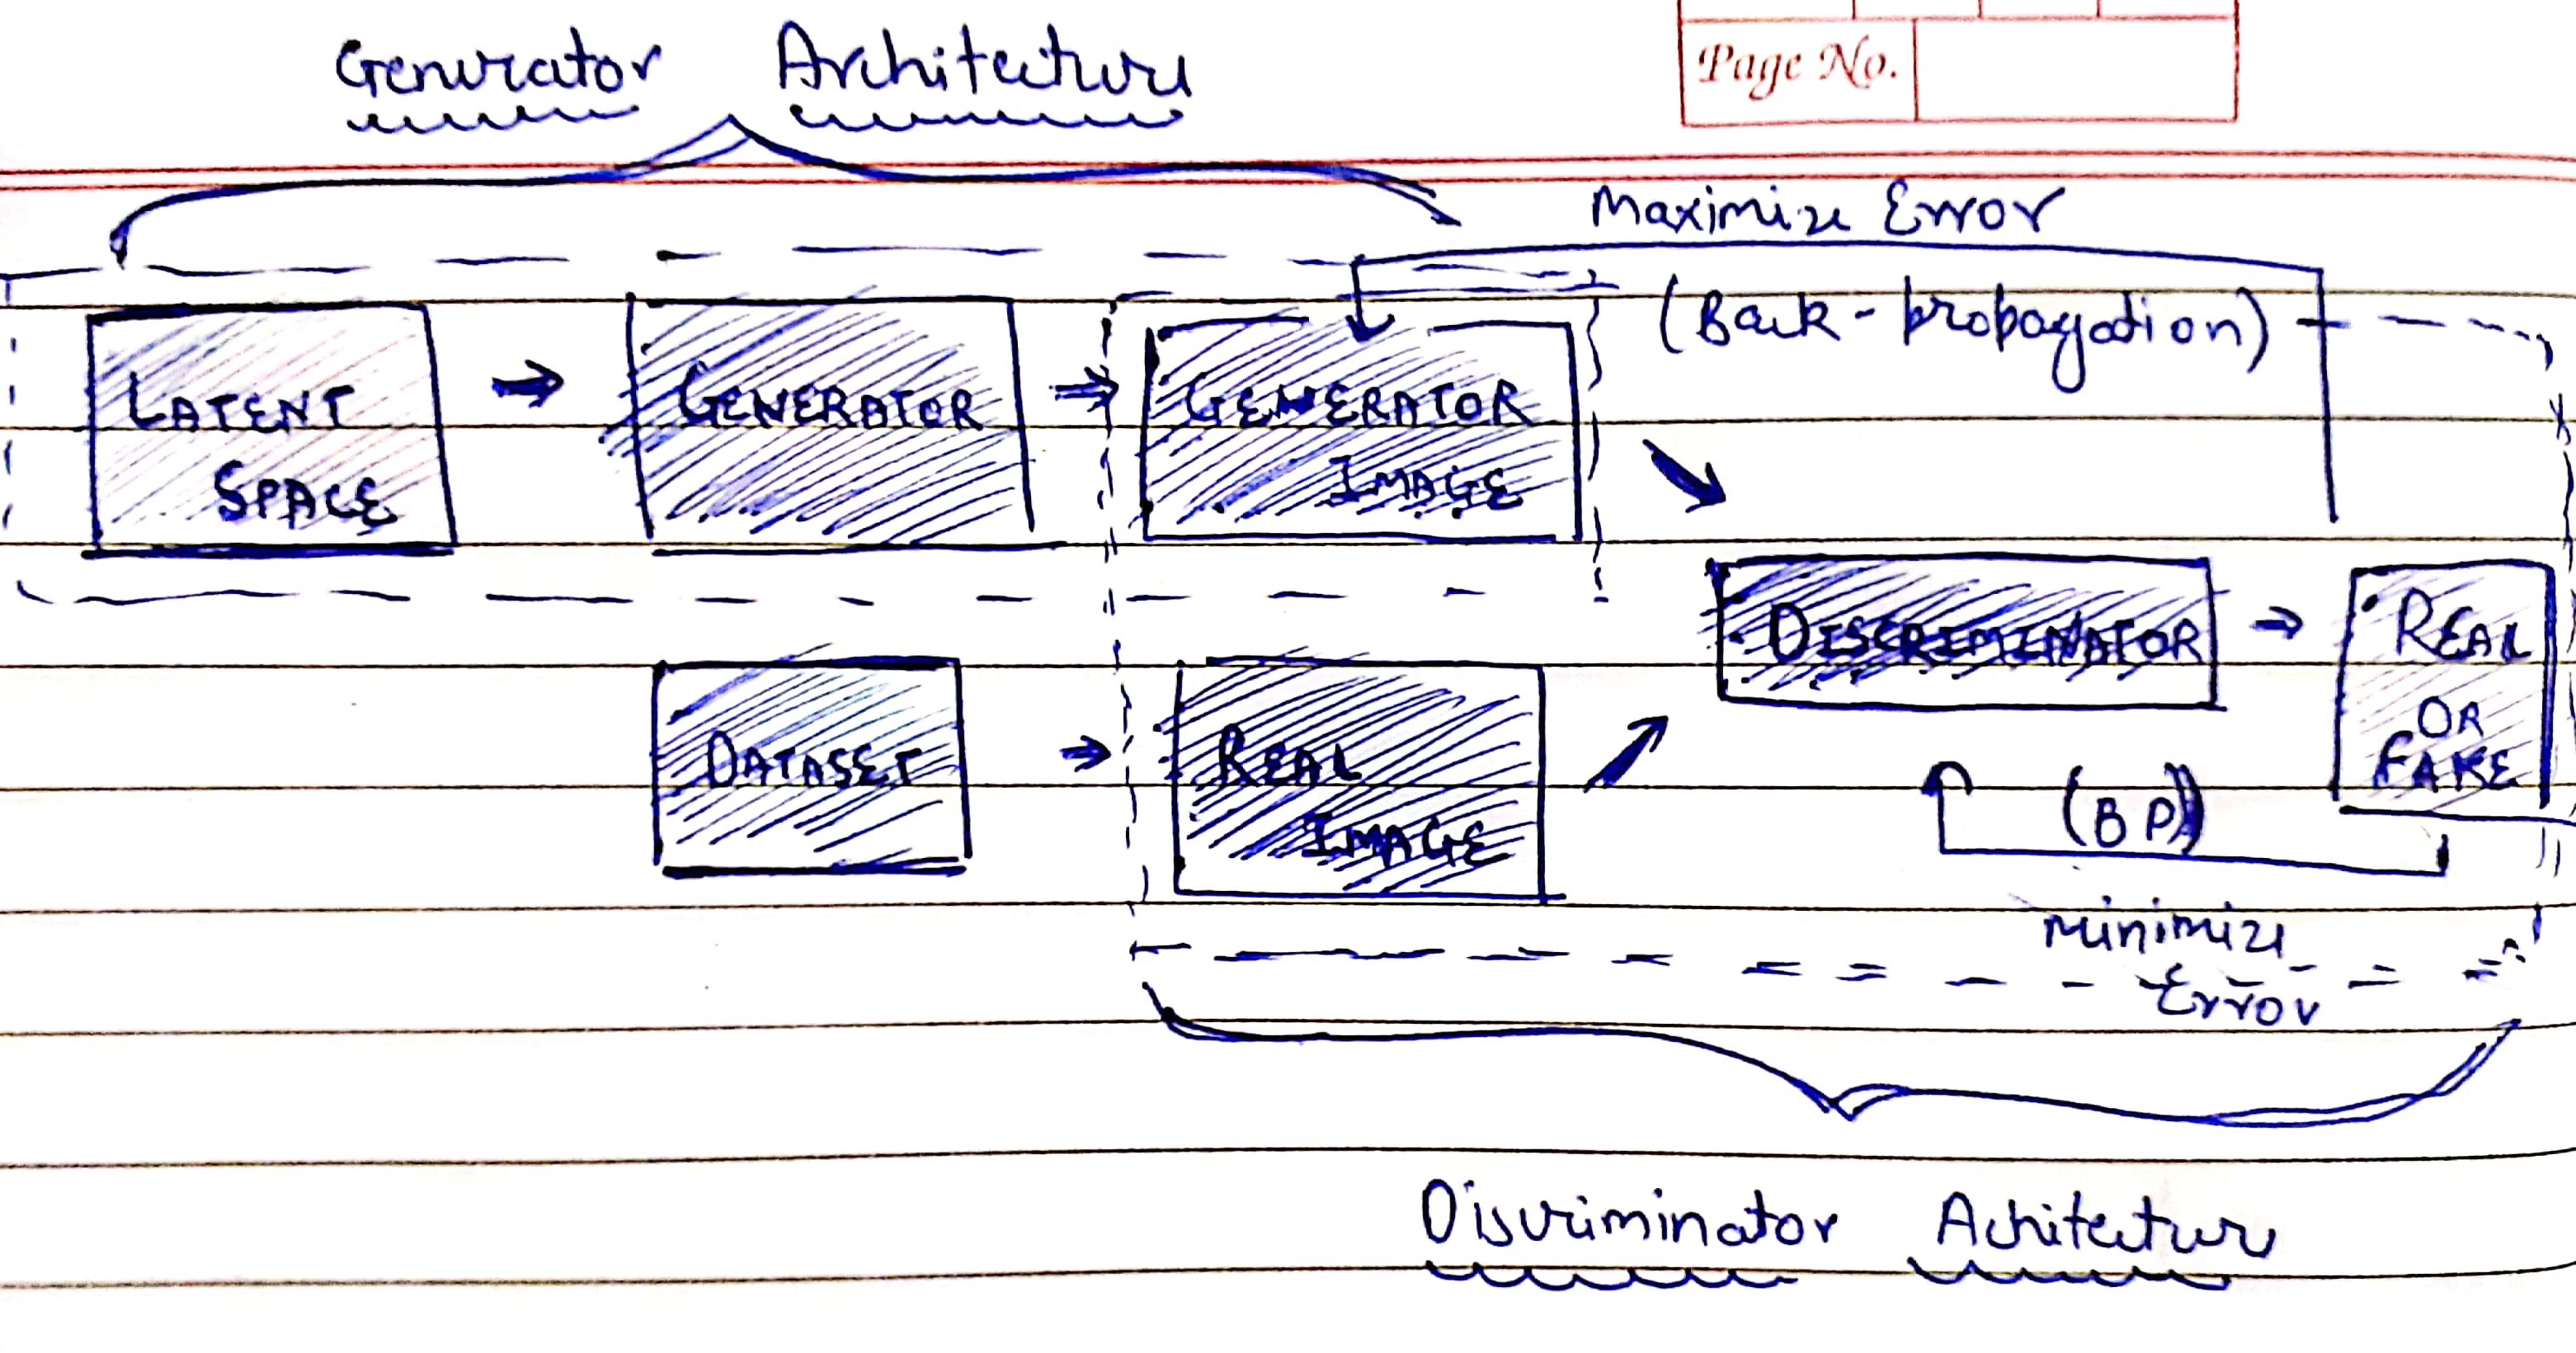 Page No.
Generator Architecture
Maximize Error
(Back-propagation)
LATENT
SPACE
GENERATOR
GENERATOR
IMAGE
DISCRIMINATOR
REAL
OR
FAKE
DATASET
REAL
IMAGE
(BP)
minimize
Error
Discriminator Achitecture